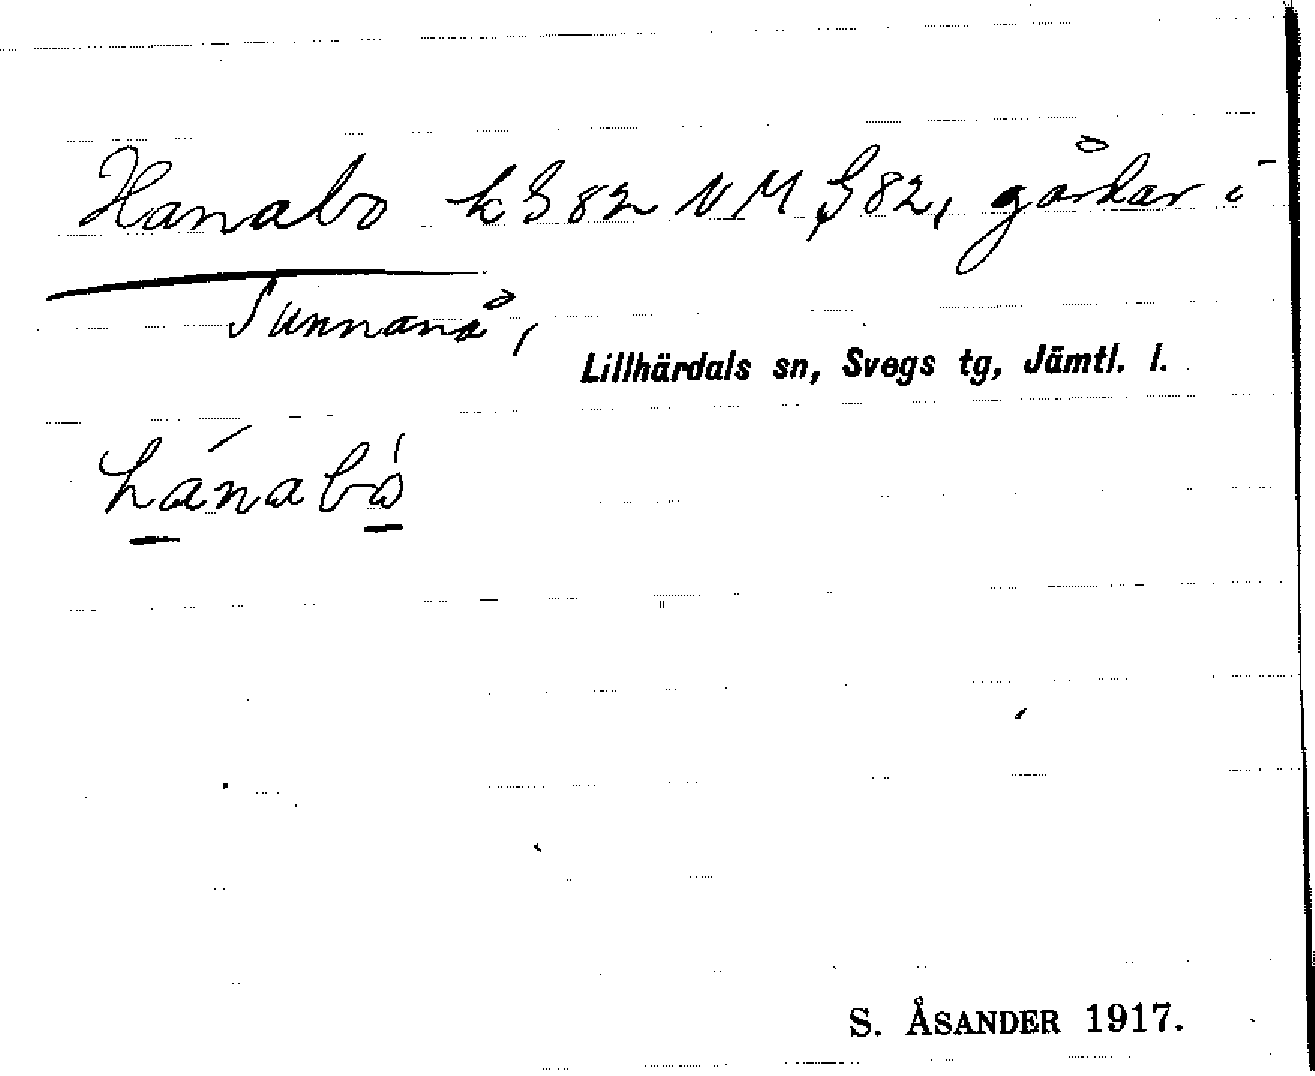 Hanabo k G 82 NM G 82, gårkar i
Sunnanå,
Lillhärdals sn, Svegs tg, Jämtl. l.
hánabó
S. ÅSANDER 1917.